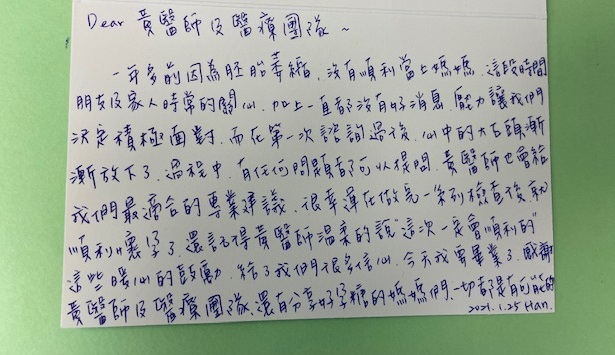 Dear 黃醫師及醫療團隊~
一年多前因為胚胎萎縮,沒有順利當上媽媽,這段時間
朋友及家人時常的關心,加上一直都沒有好消息,壓力讓我們
決定積極面對,而在第一次諮詢過後,心中的大石頭漸
漸放下了,過程中,有任何問題都可以提問,黃醫師也會給
我們最適合的專業建議,很幸運在做完一系列檢查後就
"順利"懷孕了,還記得黃醫師溫柔的說"這次一定會順利的"
這些暖心的鼓勵,給了我們很多信心,今天我要畢業了,感謝
黃醫師及醫療團隊,還有分享好孕糖的媽媽們,一切都是有可能的
2021.1.25 Han.